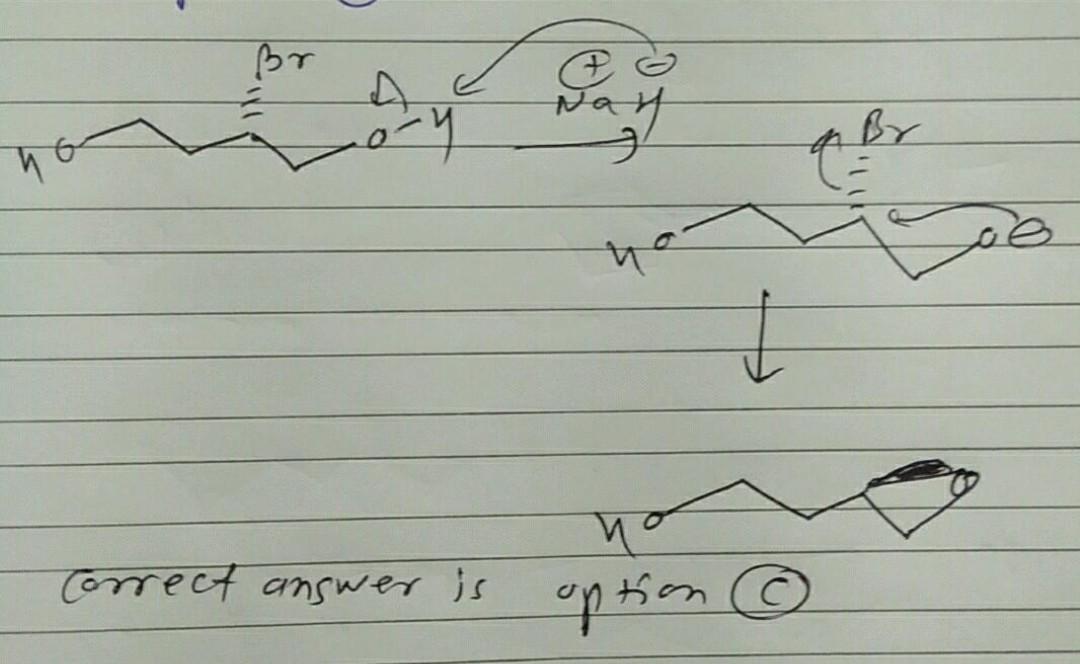 Br
HO O-H
⊕ ⊖
NaH
Br
HO O⊖
HO O
Correct answer is option (C)